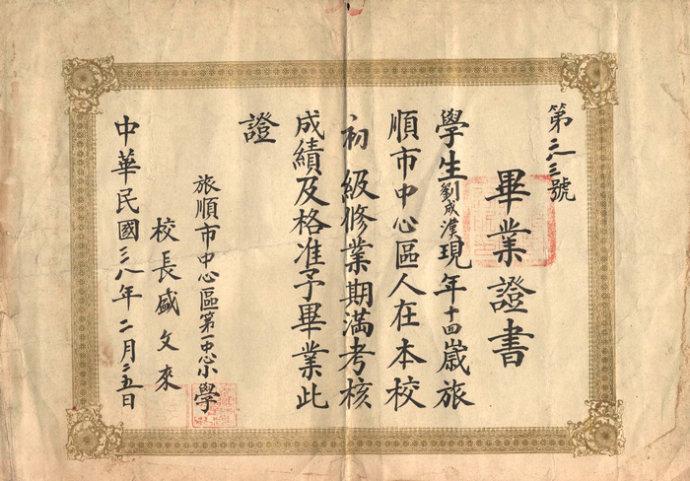 第二八三號
畢業證書
學生劉成漢現年十四歲旅
順市中心區人在本校
初級修業期滿考核
成績及格准予畢業此
證
旅順市中心區第一中心小學
校長盛文來
中華民國三八年二月二五日